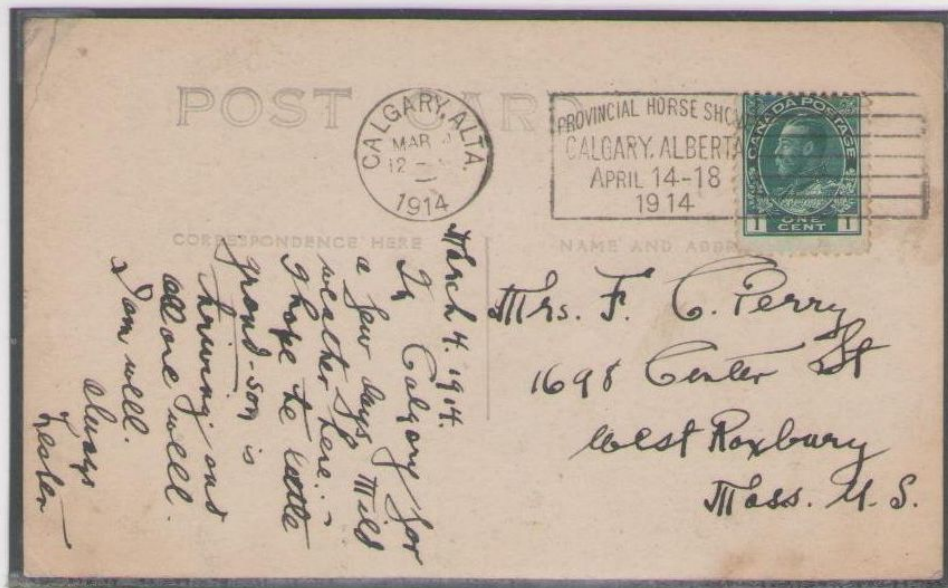 POST CARD
CALGARY, ALTA.
MAR
12
1914
PROVINCIAL HORSE SHOW
CALGARY, ALBERTA
APRIL 14-18
1914
CANADA POSTAGE
1 ONE CENT 1
CORRESPONDENCE HERE
NAME AND ADDR
March 4. 1914.
In Calgary for
a few days. Mild
weather here.
I hope the little
grand-son is
thriving and
all are well.
I am well.
Always
Lester
Mrs. F. C. Perry
1698 Center St
West Roxbury
Mass. U.S.